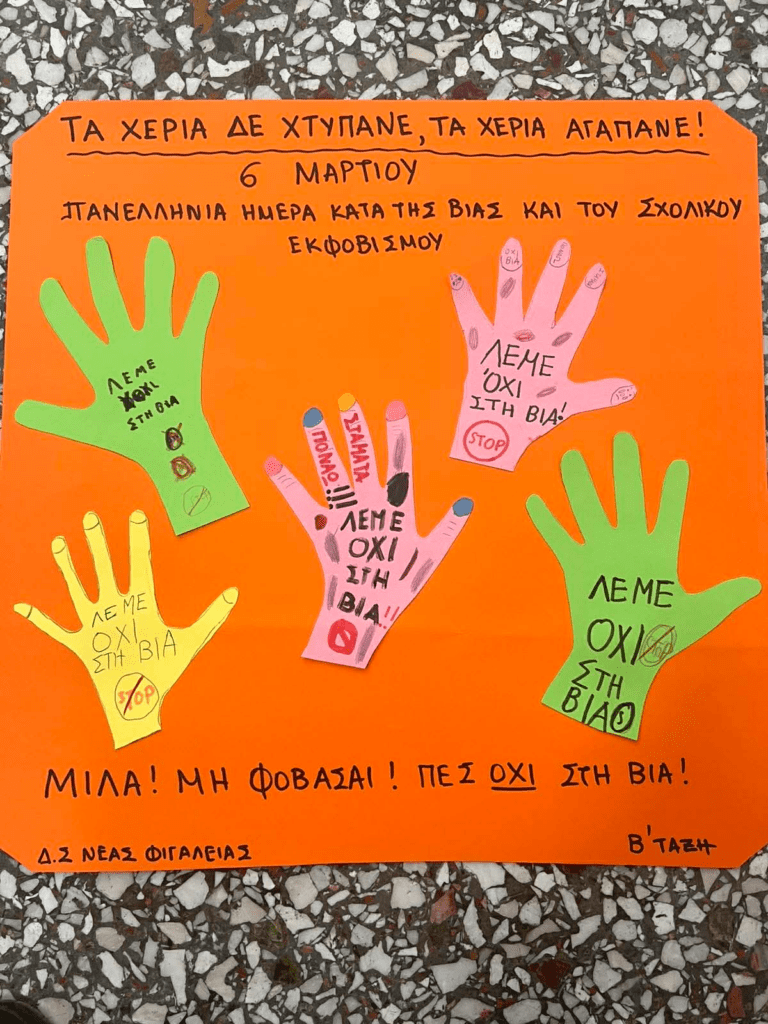 ΤΑ ΧΕΡΙΑ ΔΕ ΧΤΥΠΑΝΕ, ΤΑ ΧΕΡΙΑ ΑΓΑΠΑΝΕ!
6 ΜΑΡΤΙΟΥ
ΠΑΝΕΛΛΗΝΙΑ ΗΜΕΡΑ ΚΑΤΑ ΤΗΣ ΒΙΑΣ ΚΑΙ ΤΟΥ ΣΧΟΛΙΚΟΥ
ΕΚΦΟΒΙΣΜΟΥ
ΛΕΜΕ
ΟΧΙ
ΣΤΗ ΒΙΑ
ΟΧΙ
ΒΙΑ
ΛΕΜΕ
ΌΧΙ
ΣΤΗ ΒΙΑ!
STOP
ΠΟΝΑΩ!!!
ΣΤΑΜΑΤΑ
ΛΕΜΕ
ΟΧΙ
ΣΤΗ
ΒΙΑ!!
ΛΕΜΕ
ΟΧΙ
ΣΤΗ ΒΙΑ
STOP
ΛΕΜΕ
ΟΧΙ
STOP
ΣΤΗ
ΒΙΑ
ΜΙΛΑ! ΜΗ ΦΟΒΑΣΑΙ! ΠΕΣ ΟΧΙ ΣΤΗ ΒΙΑ!
Δ.Σ ΝΕΑΣ ΦΙΓΑΛΕΙΑΣ
Β' ΤΑΞΗ